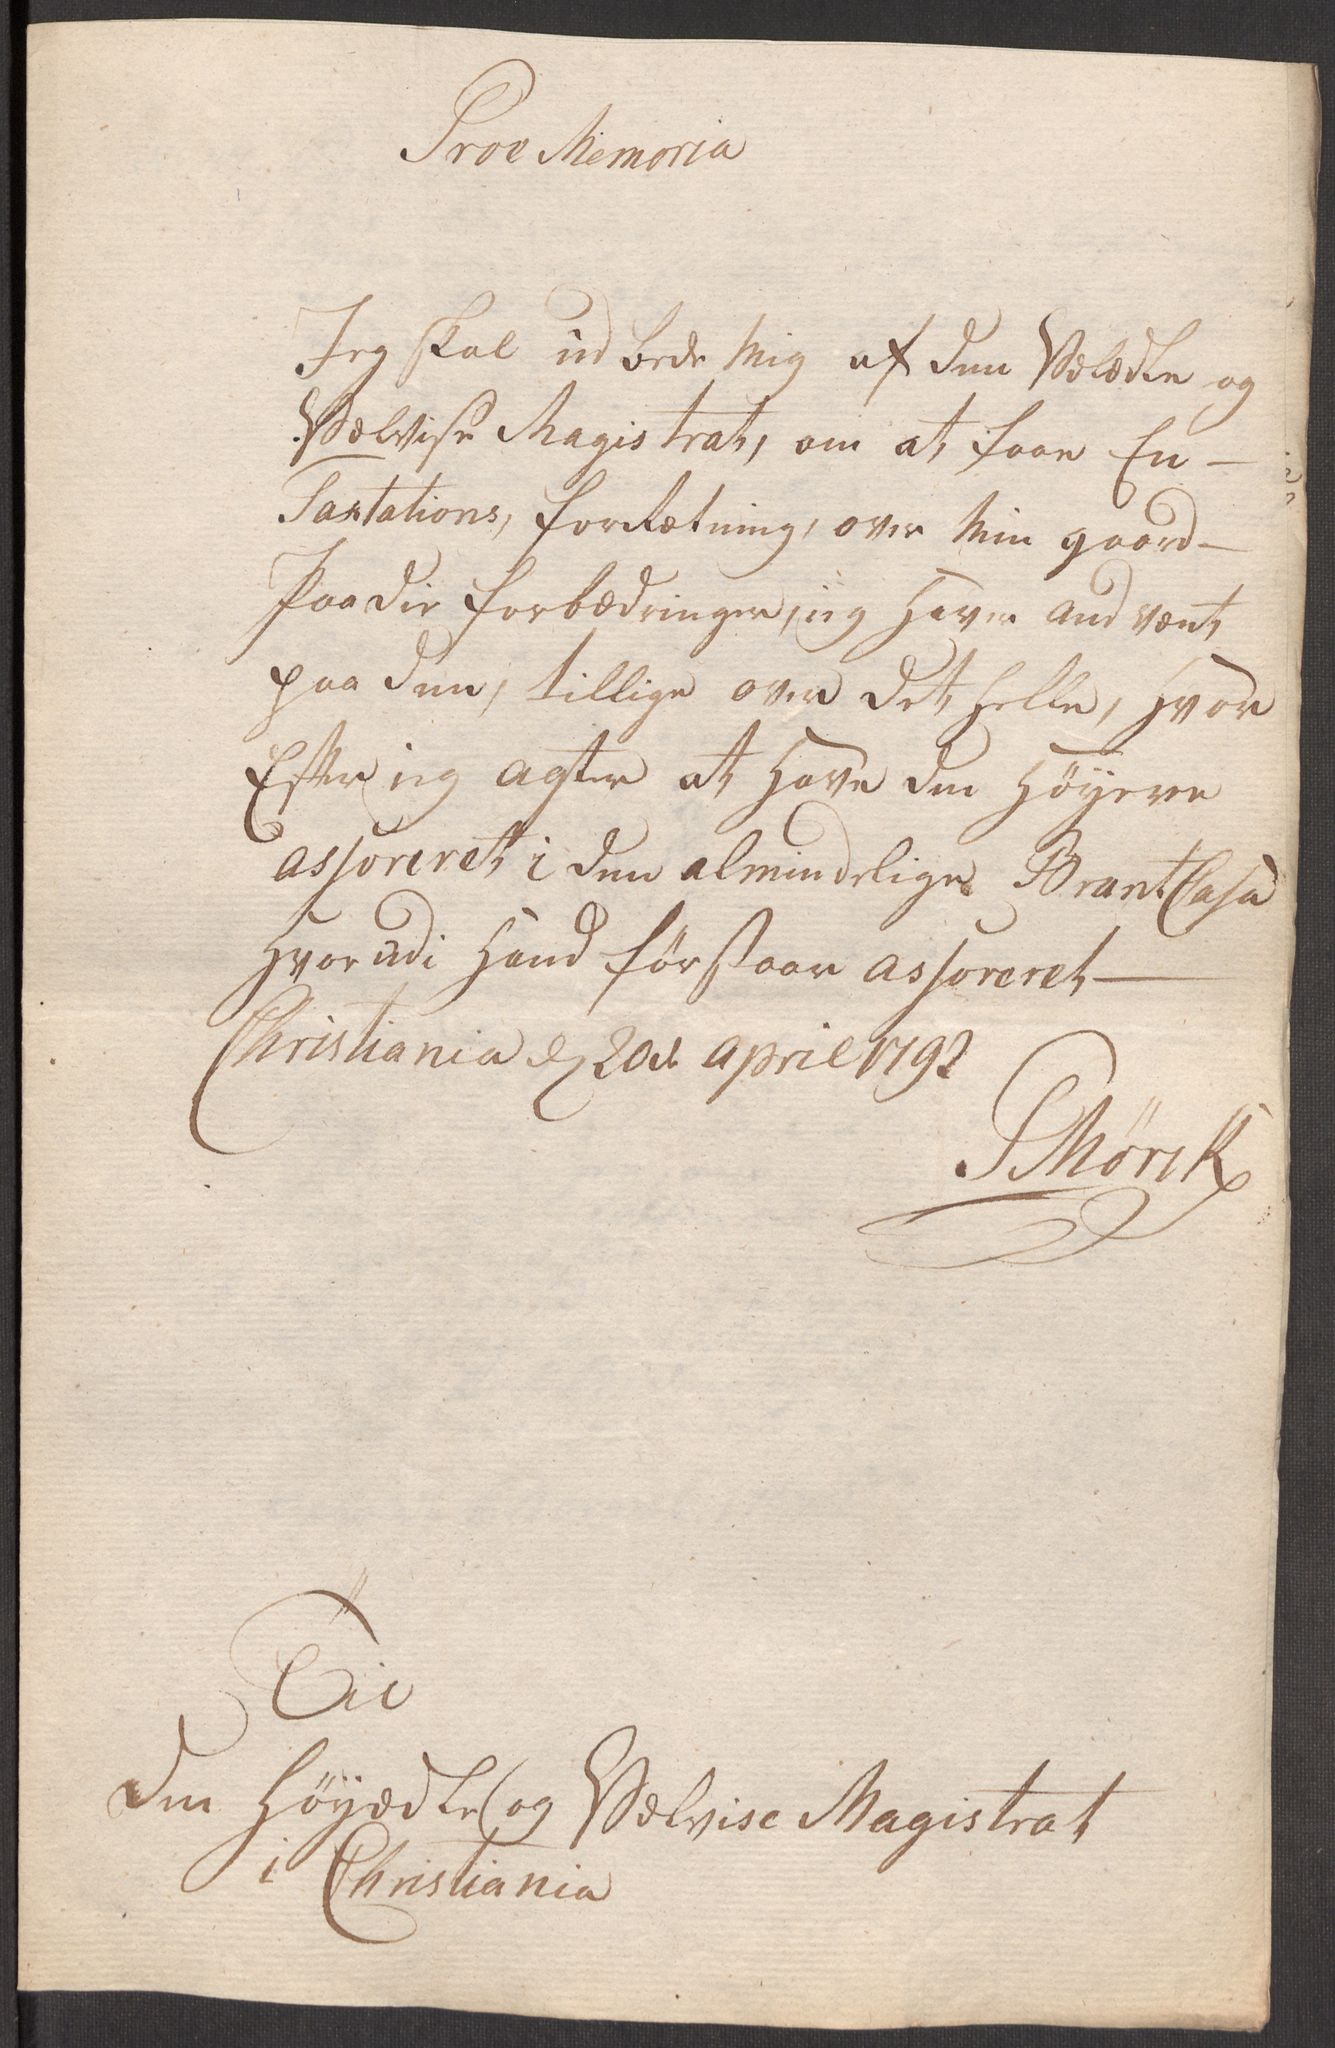 Proe Memoria
Jeg skal ud bede Mig af den Vælædle og
Vælvise Magistrat, om at faae En
Taxtations, forrætning, over Min gaard
Paa die forbædringer, ieg haver andvænt
paa den, tillige over det helle, hvor
Efter ieg agter at have den höyere
assoreret i den almindelige Brant Casa
hvorudi hand før staar assoreret
Christiania d 20de april 1792
P Mörck
Til
den Höyædle og Vælvise Magistrat
i Christiania